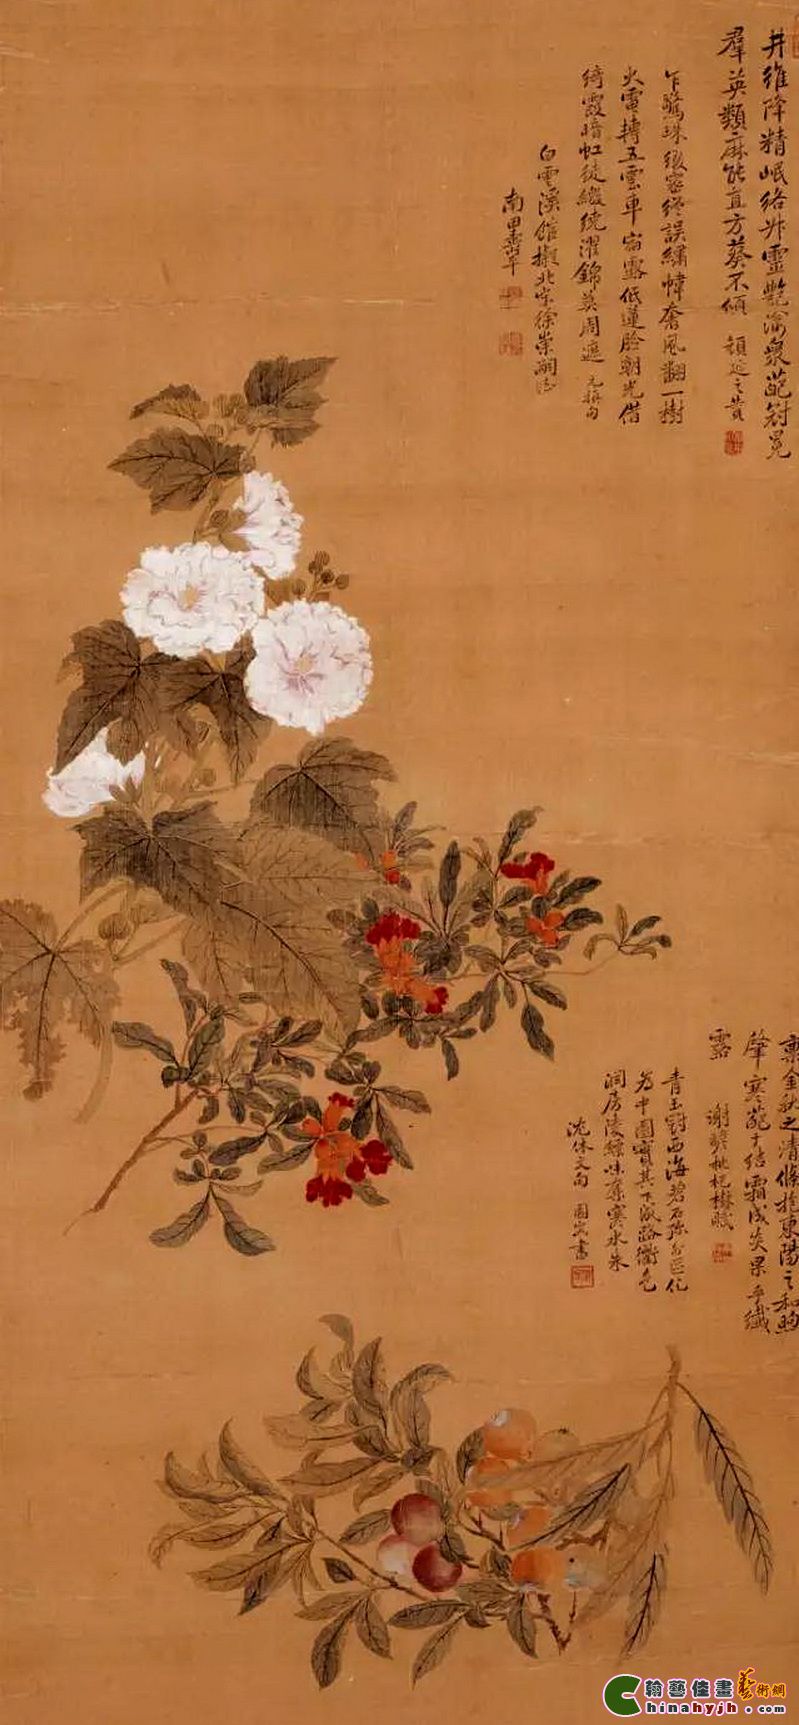 井維降精岷絡升靈艷淪衆葩冠冕
羣英類麻能直方葵不傾 顏延之贊
乍驚珠綴密終誤繡幃奢風翻一樹
火電轉五雲車宿露低蓮臉朝光借
綺霞暗虹徒繳繞濯錦莫周遮 元稹句
白雲溪館擬北宋徐崇嗣
南田壽平
稟金秋之清條抱東陽之和煦
肇寒葩于結霜成炎果乎纖
露 謝瞻枇杷樹賦
青玉冠西海碧石彌外區化
為中園實其下成路衢色
潤房陵縹味奪寒水朱
沈休文句 園客書
翰藝佳畫藝術網
Chinahyjh.com